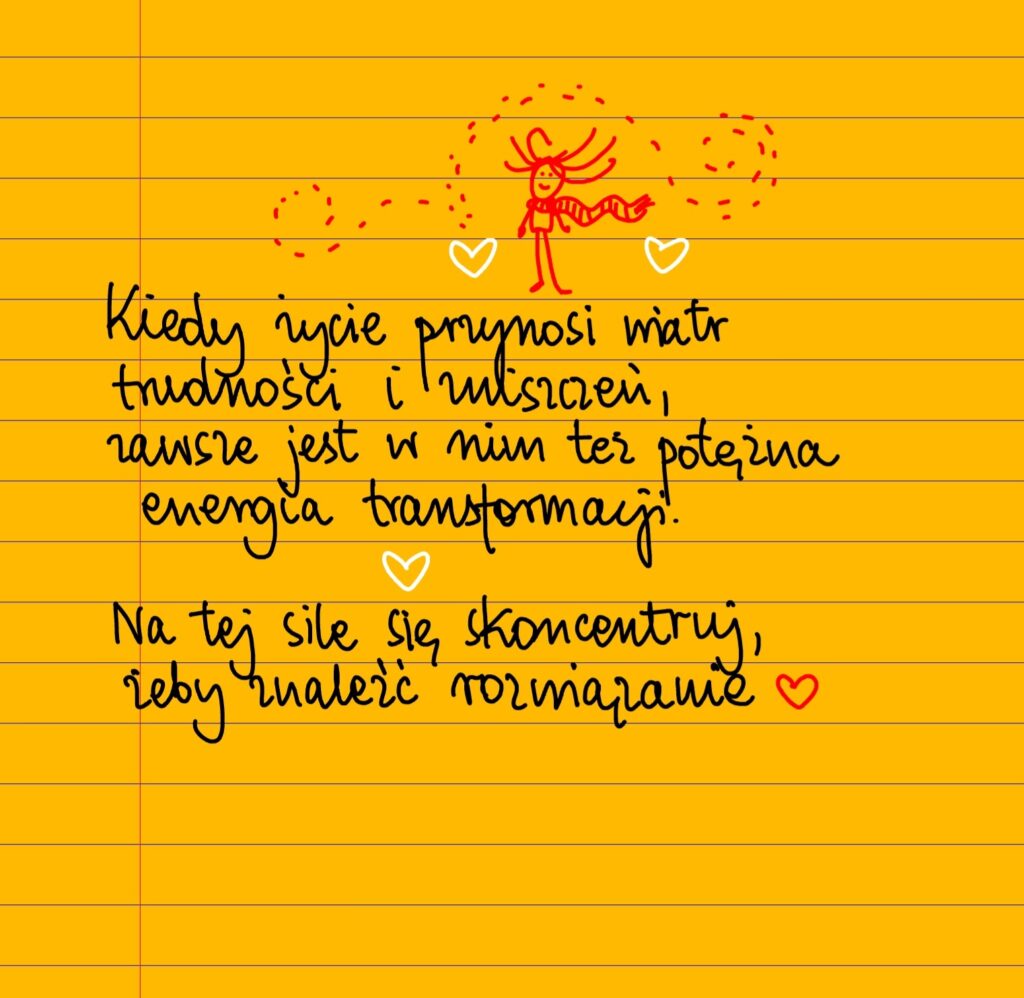 Kiedy życie przynosi wiatr
trudności i zniszczeń,
zawsze jest w nim też potężna
energia transformacji.
Na tej sile się skoncentruj,
żeby znaleźć rozwiązanie